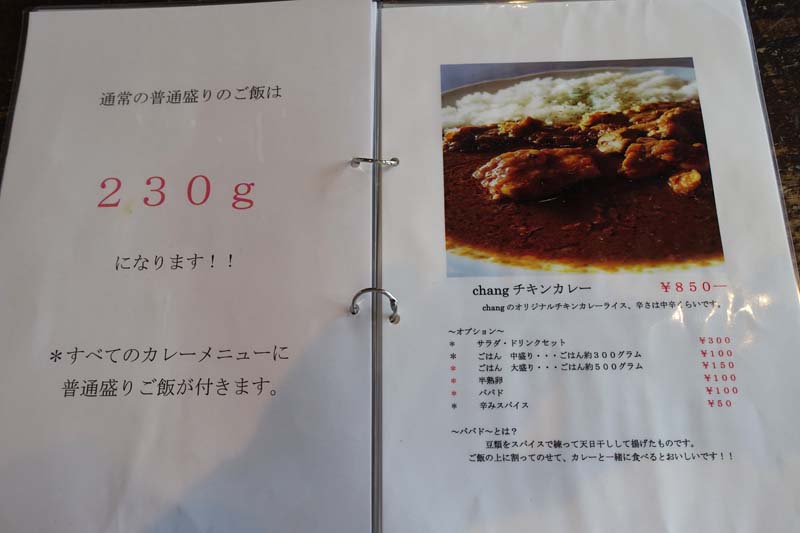 通常の普通盛りのご飯は
２３０ｇ
になります！！
＊すべてのカレーメニューに
普通盛りご飯が付きます。
chang チキンカレー ￥８５０―
chang のオリジナルチキンカレーライス、辛さは中辛くらいです。
～オプション～
＊ サラダ・ドリンクセット ￥３００
＊ ごはん 中盛り・・・ごはん約３００グラム ￥１００
＊ ごはん 大盛り・・・ごはん約５００グラム ￥１５０
＊ 半熟卵 ￥１００
＊ パパド ￥１００
＊ 辛みスパイス ￥５０
～パパド～とは？
豆類をスパイスで練って天日干しして揚げたものです。
ご飯の上に割ってのせて、カレーと一緒に食べるとおいしいです！！